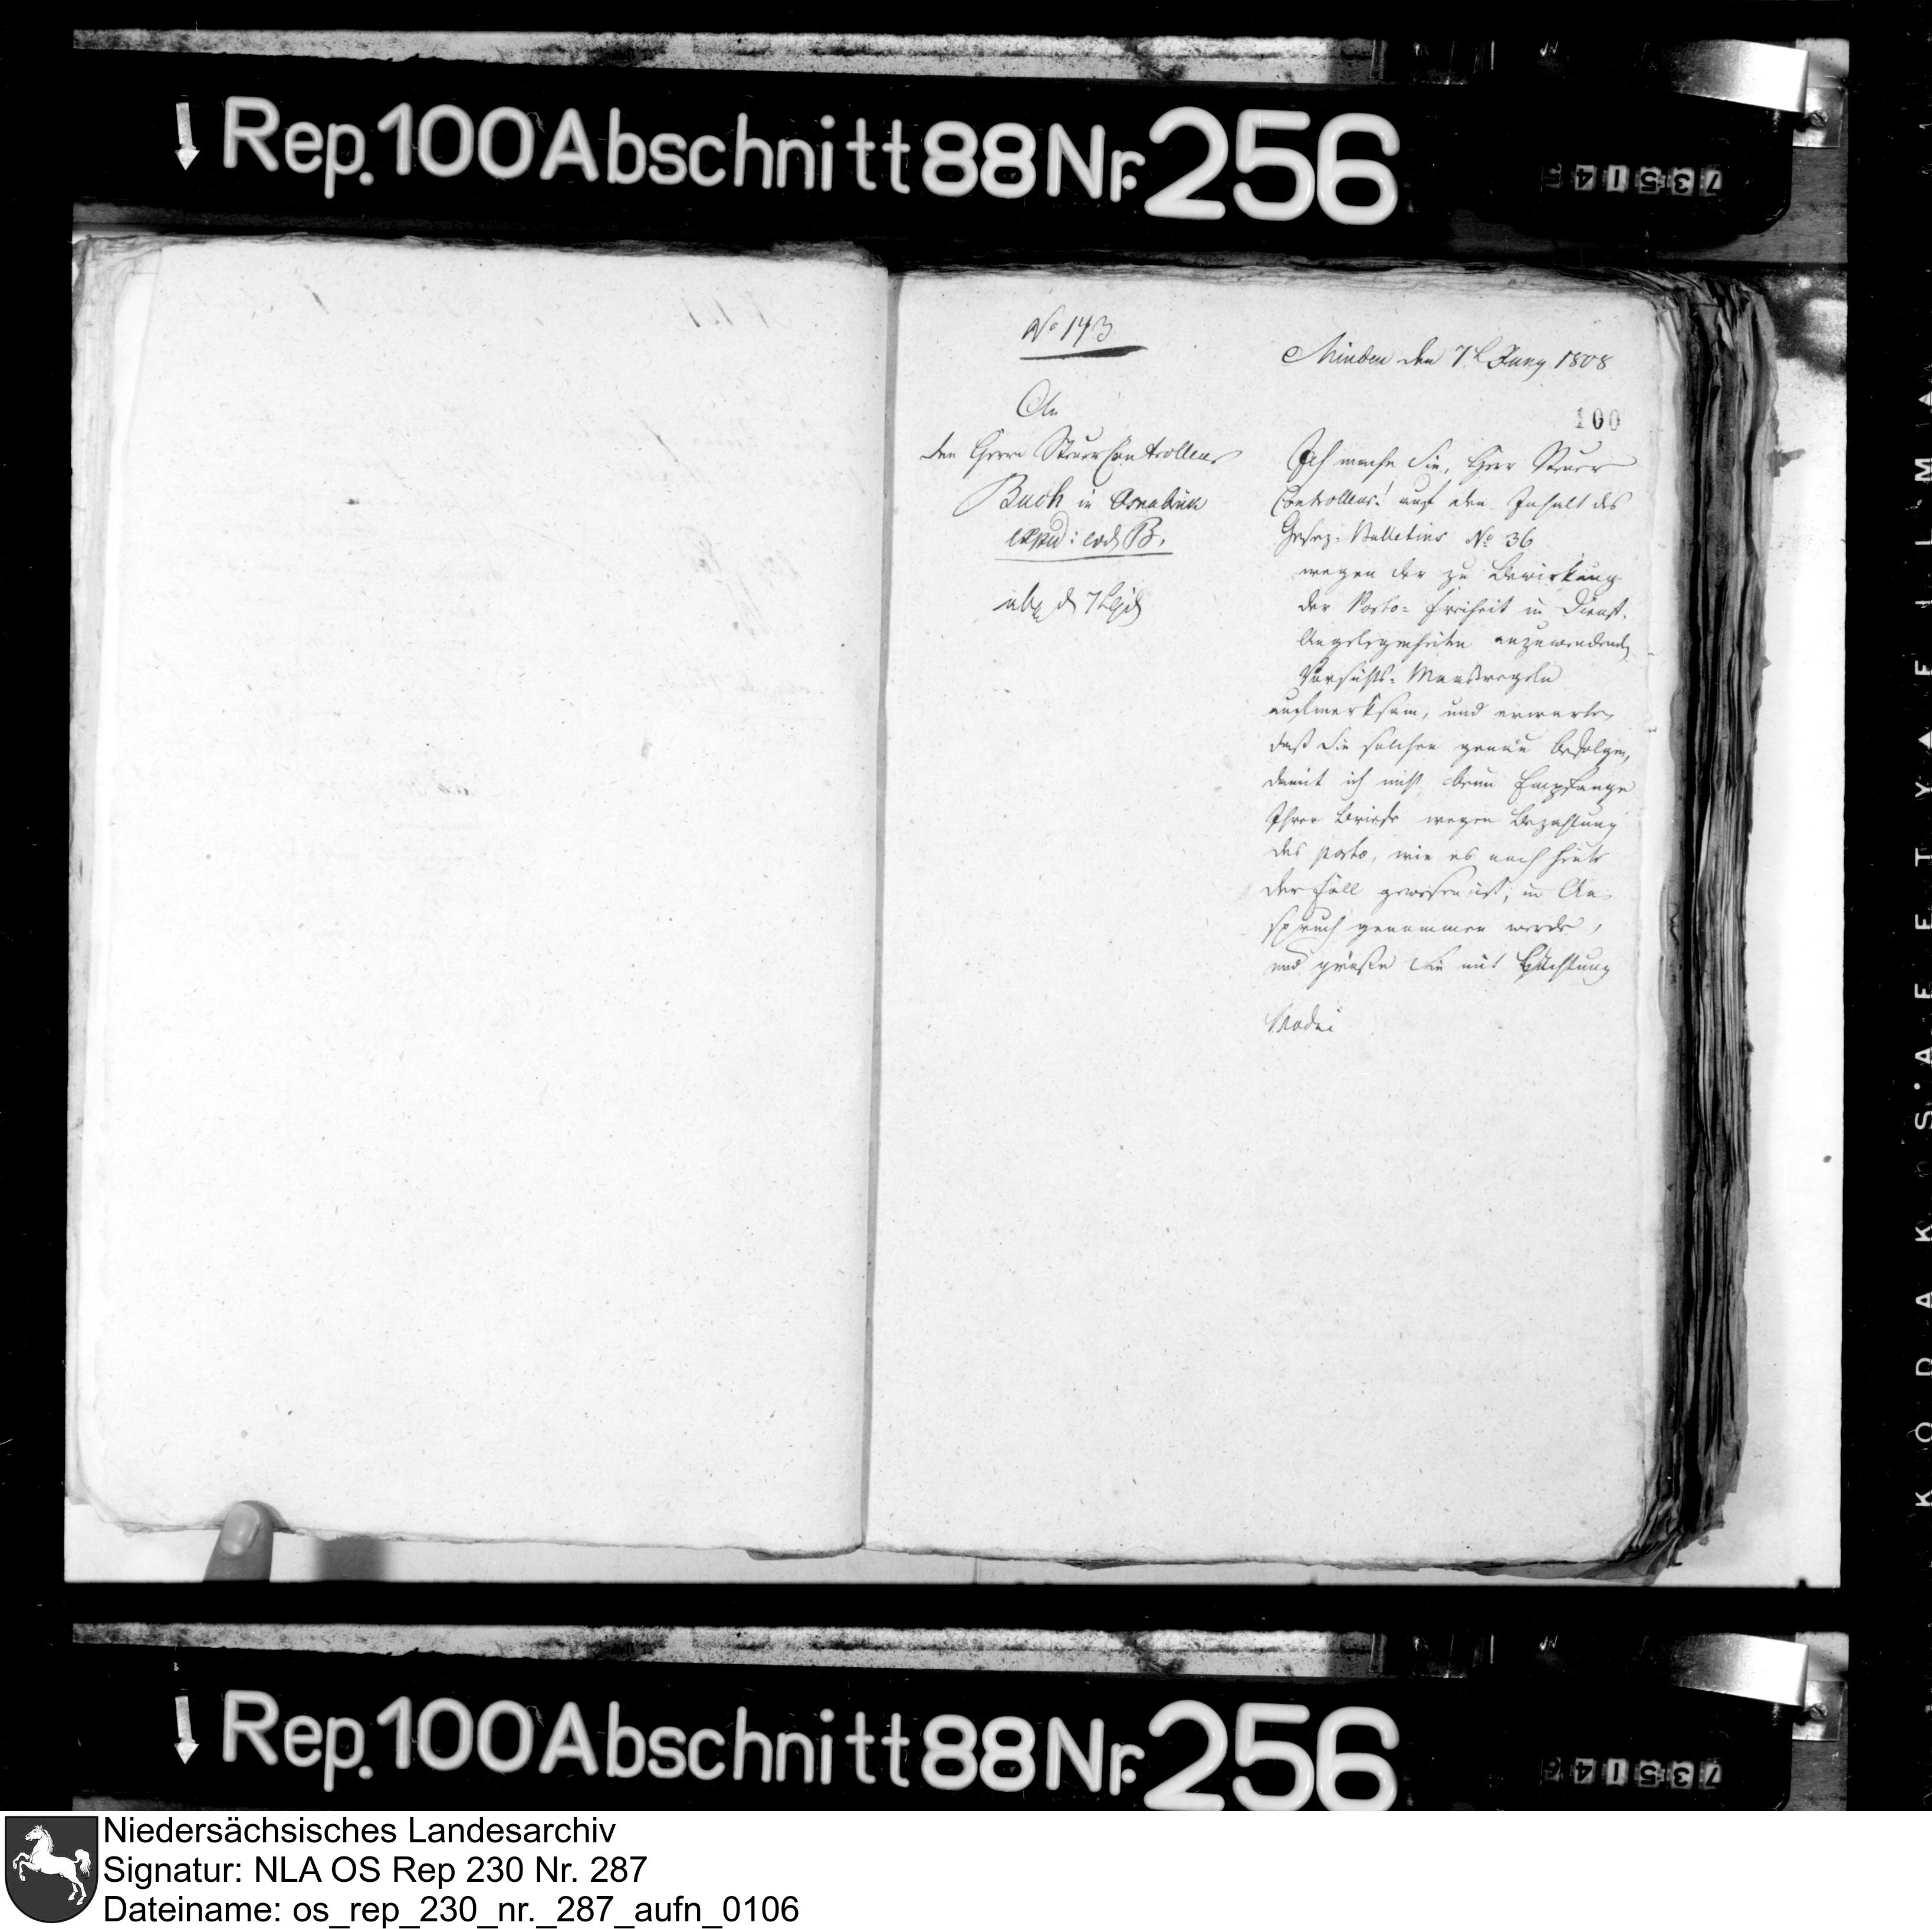 Rep. 100 Abschnitt 88 Nr. 256
No 143
An
den Herrn Steuer Controlleur
Buch in Osnabrück
exped: eod B.
abg d 7t ejd
Minden den 7t Juny 1808
100
Ich mache Sie, Herr Steuer
Controlleur! auf den Inhalt des
Gesez-Bulletins No 36
wegen der zu Bewirkung
der Porto-Freiheit in Dienst-
Angelegenheiten anzuwendenden
Vorsichts-Maasregeln
aufmerksam, und erwarte,
daß Sie solchen genau befolgen,
damit ich nicht beim Empfange
Ihrer Briefe wegen Bezahlung
des porto, wie es noch heute
der Fall gewesen ist, in An-
spruch genommen werde,
und grüße Sie mit Achtung
KODAK SAFETY FILM
Rep. 100 Abschnitt 88 Nr. 256
Niedersächsisches Landesarchiv
Signatur: NLA OS Rep 230 Nr. 287
Dateiname: os_rep_230_nr._287_aufn_0106